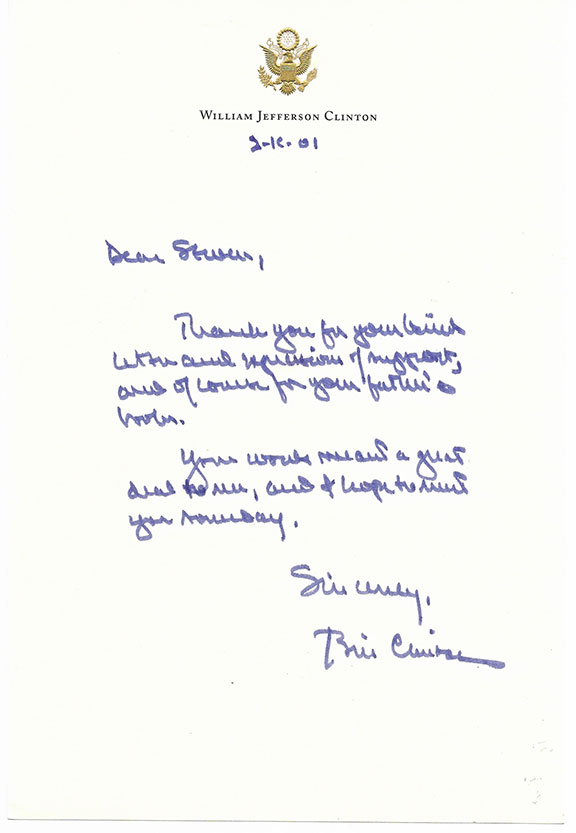 WILLIAM JEFFERSON CLINTON
Dear Steven,
Thank you for your kind
letter and expressions of support,
and of course for your father's
books.
Your words meant a great
deal to me, and I hope to meet
you someday.
Sincerely,
Bill Clinton